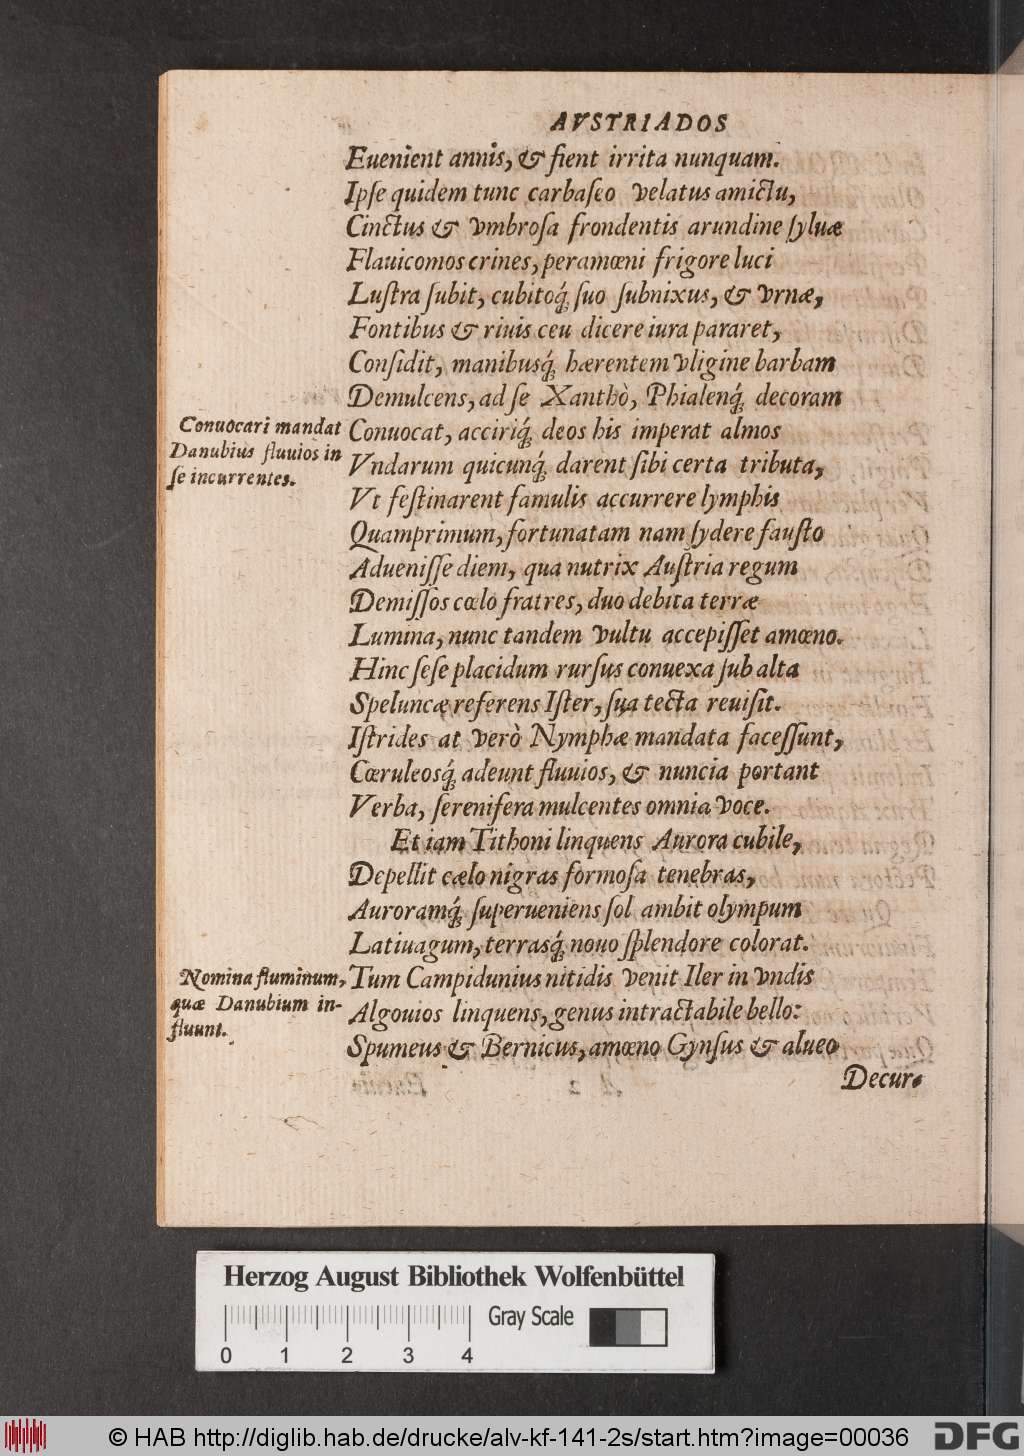 AVSTRIADOS
Euenient annis, & fient irrita nunquam.
Ipſe quidem tunc carbaſeo velatus amictu,
Cinctus & vmbroſa frondentis arundine ſyluæ
Flauicomos crines, peramœni frigore luci
Luſtra ſubit, cubitoq́; ſuo ſubnixus, & vrnæ,
Fontibus & riuis ceu dicere iura pararet,
Conſidit, manibusq́; hærentem vligine barbam
Demulcens, ad ſe Xanthò, Phialenq́; decoram
Conuocari mandat
Danubius fluuios in
ſe incurrentes.
Conuocat, acciriq́; deos his imperat almos
Vndarum quicunq́; darent ſibi certa tributa,
Vt feſtinarent famulis accurrere lymphis
Quamprimum, fortunatam nam ſydere fauſto
Adueniſſe diem, qua nutrix Auſtria regum
Demiſſos cœlo fratres, duo debita terræ
Lumina, nunc tandem vultu accepiſſet amœno.
Hinc ſeſe placidum rurſus conuexa ſub alta
Speluncæ referens Iſter, ſua tecta reuiſit.
Iſtrides at verò Nymphæ mandata faceſſunt,
Cœruleosq́; adeunt fluuios, & nuncia portant
Verba, ſerenifera mulcentes omnia voce.
Et iam Tithoni linquens Aurora cubile,
Depellit cælo nigras formoſa tenebras,
Auroramq́; ſuperueniens ſol ambit olympum
Latiuagum, terrasq́; nouo ſplendore colorat.
Nomina fluminum,
quæ Danubium in-
fluunt.
Tum Campidunius nitidis venit Iler in vndis
Algouios linquens, genus intractabile bello:
Spumeus & Bernicus, amœno Gynſus & alueo
Decur-
Herzog August Bibliothek Wolfenbüttel
Gray Scale
0 1 2 3 4
© HAB http://diglib.hab.de/drucke/alv-kf-141-2s/start.htm?image=00036
DFG